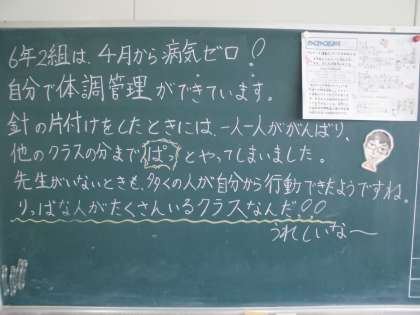 6年2組は、4月から病気ゼロ!
自分で体調管理ができています。
針の片付けをしたときには、一人一人ががんばり、
他のクラスの分まで「ぱっ」とやってしまいました。
先生がいないときも、多くの人が自分から行動できたようですね。
りっぱな人がたくさんいるクラスなんだ!!
うれしいな～